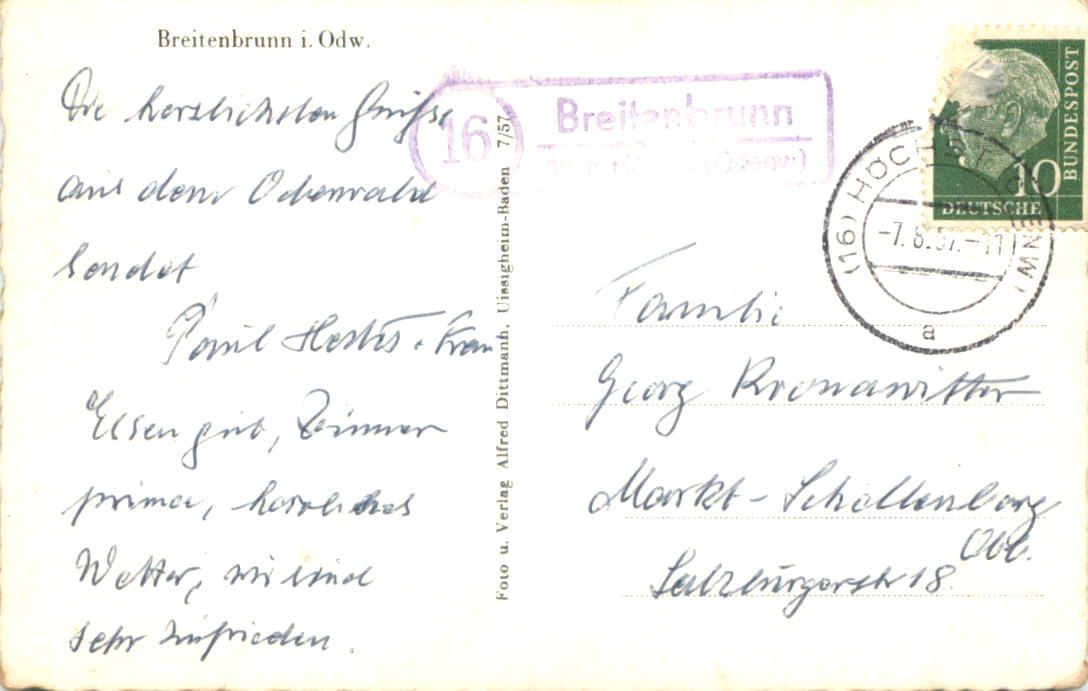 Breitenbrunn i. Odw.
Die herzlichsten Grüsse
aus dem Odenwald
sendet
Paul u. Frau
Essen gut, Zimmer
prima, herrliches
Wetter, wir sind
sehr zufrieden.
Foto u. Verlag Alfred Dittmann, Uissigheim-Baden 7/57
16
Breitenbrunn
über Höchst (Odenw)
(16) HÖCHST (ODENW)
-7.8.57.-11
a
10
DEUTSCHE
BUNDESPOST
Familie
Georg Kronawitter
Markt-Schellenberg
Obb.
Salzburgerstr 18.